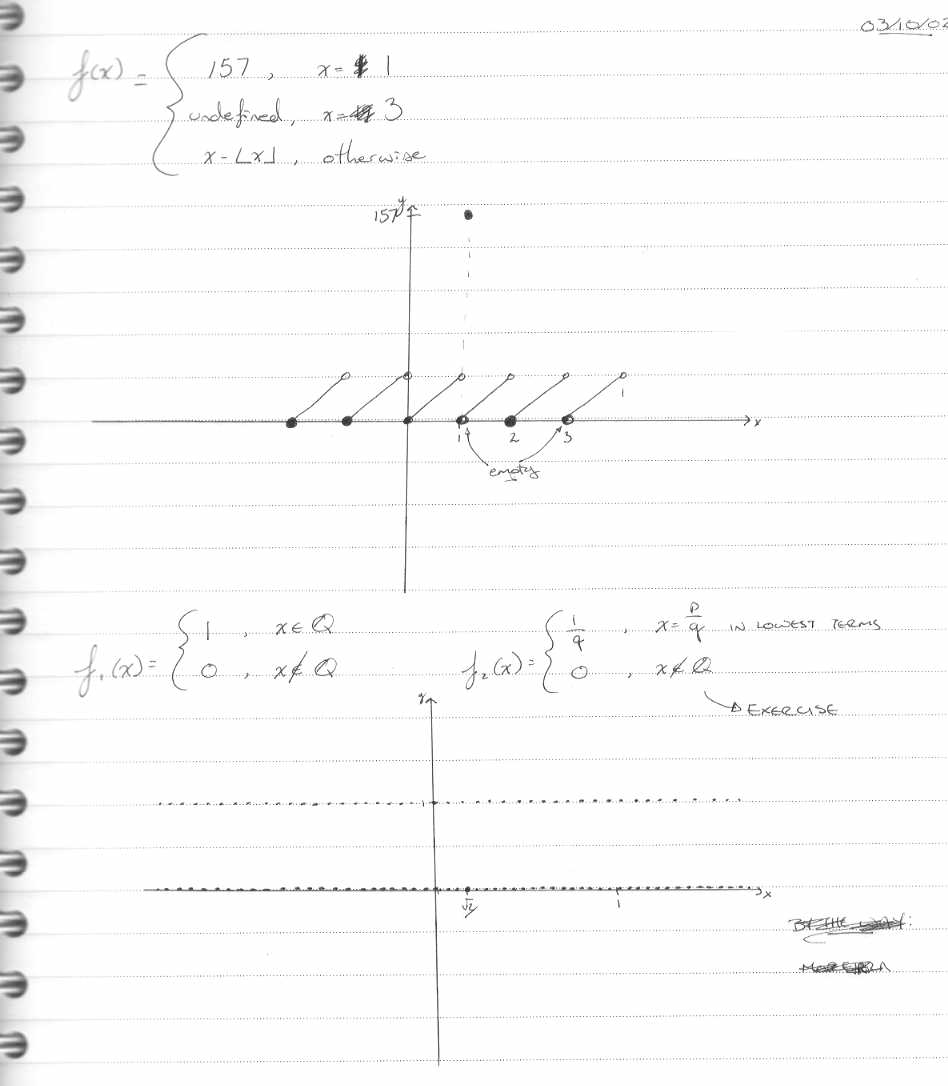 03/10/02
f(x) = { 157 , x = 1
undefined, x = 3
x - ⌊x⌋ , otherwise
157 y
1
x
1 2 3
empty
f₁(x) = { 1 , x ∈ Q
0 , x ∉ Q
f₂(x) = { 1/q , x = p/q IN LOWEST TERMS
0 , x ∉ Q
EXERCISE
y
1
x
√2/2 1
BY THE WAY: